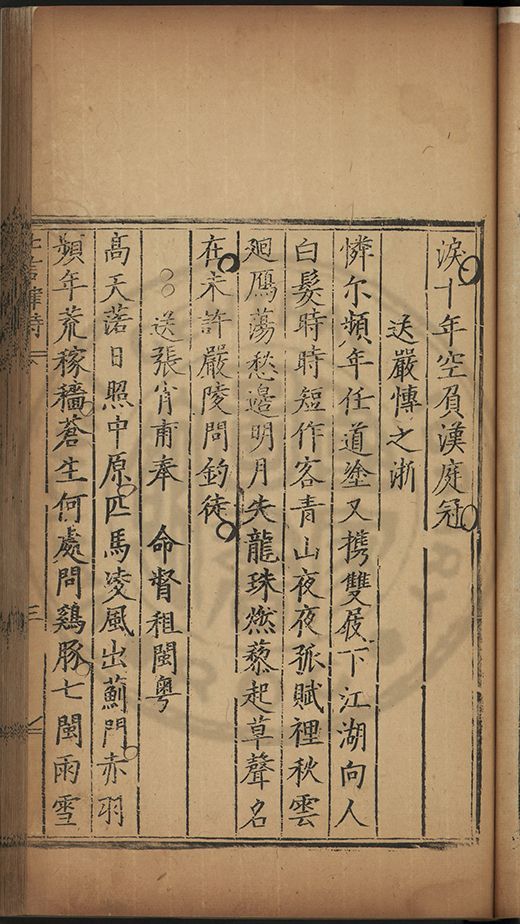 淚十年空負漢庭冠
送嚴慱之浙
憐尔頻年任道塗又攜雙屐下江湖向人
白髮時時短作客青山夜夜孤賦裡秋雲
廻鴈蕩愁邊明月失龍珠燃藜起草聲名
在未許嚴陵問釣徒
○○送張肯甫奉 命督租閩粤
高天落日照中原匹馬凌風出薊門赤羽
頻年荒稼穡蒼生何處問鷄豚七閩雨雪
律詩
三